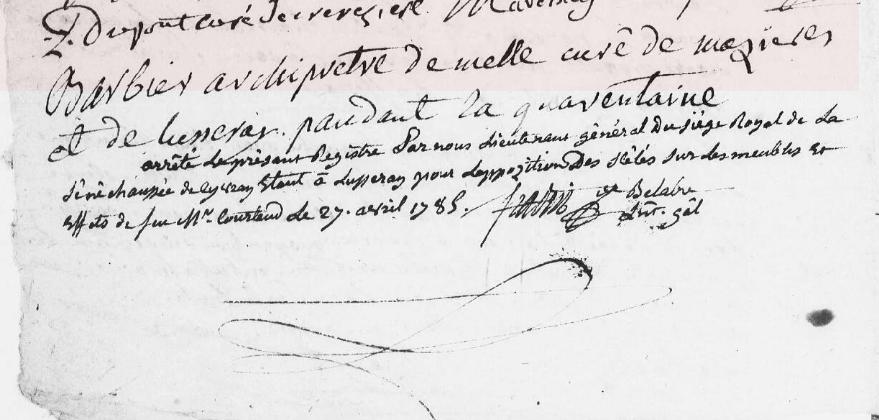 Dupont curé de
Barbier archipretre de melle curé de mezieres
et de lusseray. pandant la quarentaine
arrêté Le présent Registre Par nous Lieutenant général Du siége Royal de La
sénéchaussée de Civray Etant à Lusseray pour L'apposition Des scélés sur Les meubles Et
Effets de feu Mr. Courtaud Le 27. avril 1785.
Delabre
Lnt. gal